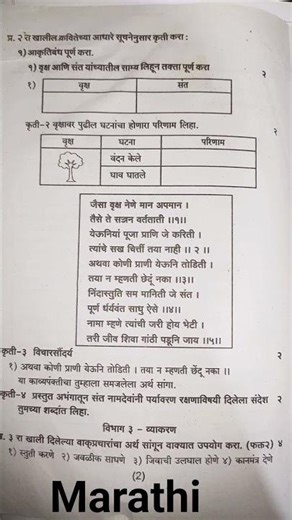 प्र. २ रा खालील कवितेच्या आधारे सूचनेनुसार कृती करा :
१) आकृतिबंध पूर्ण करा.
१) वृक्ष आणि संत यांच्यातील साम्य लिहून तक्ता पूर्ण करा २
१) वृक्ष संत
कृती-२ वृक्षावर पुढील घटनांचा होणारा परिणाम लिहा. २
वृक्ष घटना परिणाम
वंदन केले
घाव घातले
जैसा वृक्ष नेणे मान अपमान ।
तैसे ते सज्जन वर्तताती ॥१॥
येऊनियां पूजा प्राणि जे करिती ।
त्यांचे सुख चित्तीं तया नाही ॥ २ ॥
अथवा कोणी प्राणी येऊनि तोडिती ।
तया न म्हणती छेदूं नका ॥३॥
निंदास्तुति सम मानिती जे संत ।
पूर्ण धैर्यवंत साधु ऐसे ॥४॥
नामा म्हणे त्यांची जरी होय भेटी ।
तरी जीव शिवा गांठी पडूनि जाय ॥५॥
कृती-३ विचारसौंदर्य २
१) अथवा कोणी प्राणी येऊनि तोडिती । तया न म्हणती छेंदू नका ॥
या काव्यपंक्तीचा तुम्हाला समजलेला अर्थ सांगा.
कृती-४ प्रस्तुत अभंगातून संत नामदेवांनी पर्यावरण रक्षणाविषयी दिलेला संदेश २
तुमच्या शब्दांत लिहा.
विभाग ३ – व्याकरण
३ रा खाली दिलेल्या वाक्प्रचारांचा अर्थ सांगून वाक्यात उपयोग करा. (फक्त२) ४
१) स्तुती करणे २) जवळीक साधणे ३) जिवाची उलघाल होणे ४) कानमंत्र देणे
(2)
Marathi